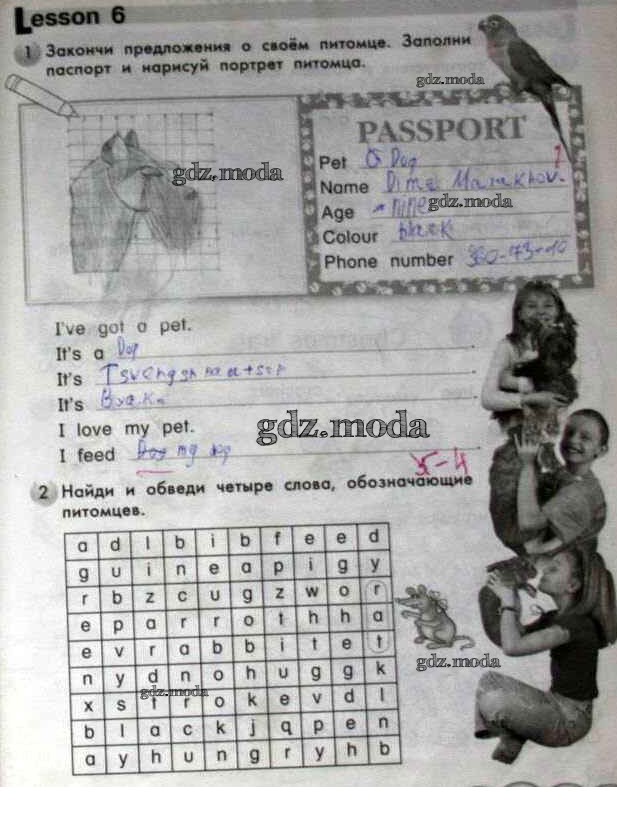 Lesson 6
1 Закончи предложения о своём питомце. Заполни
паспорт и нарисуй портрет питомца.
gdz.moda
PASSPORT
gdz.moda
Pet Dog
Name Dima
gdz.moda
Age nine
Colour black
Phone number
I've got a pet.
It's a Dog
It's
It's
I love my pet.
gdz.moda
I feed my dog
5-4
2 Найди и обведи четыре слова, обозначающие
питомцев.
a d l b i b f e e d
g u i n e a p i g y
r b z c u g z w o r
e p a r r o t h h a
e v r a b b i t e t
n y d n o h u g g k
gdz.moda
gdz.moda
x s t r o k e v d l
b l a c k j q p e n
a y h u n g r y h b